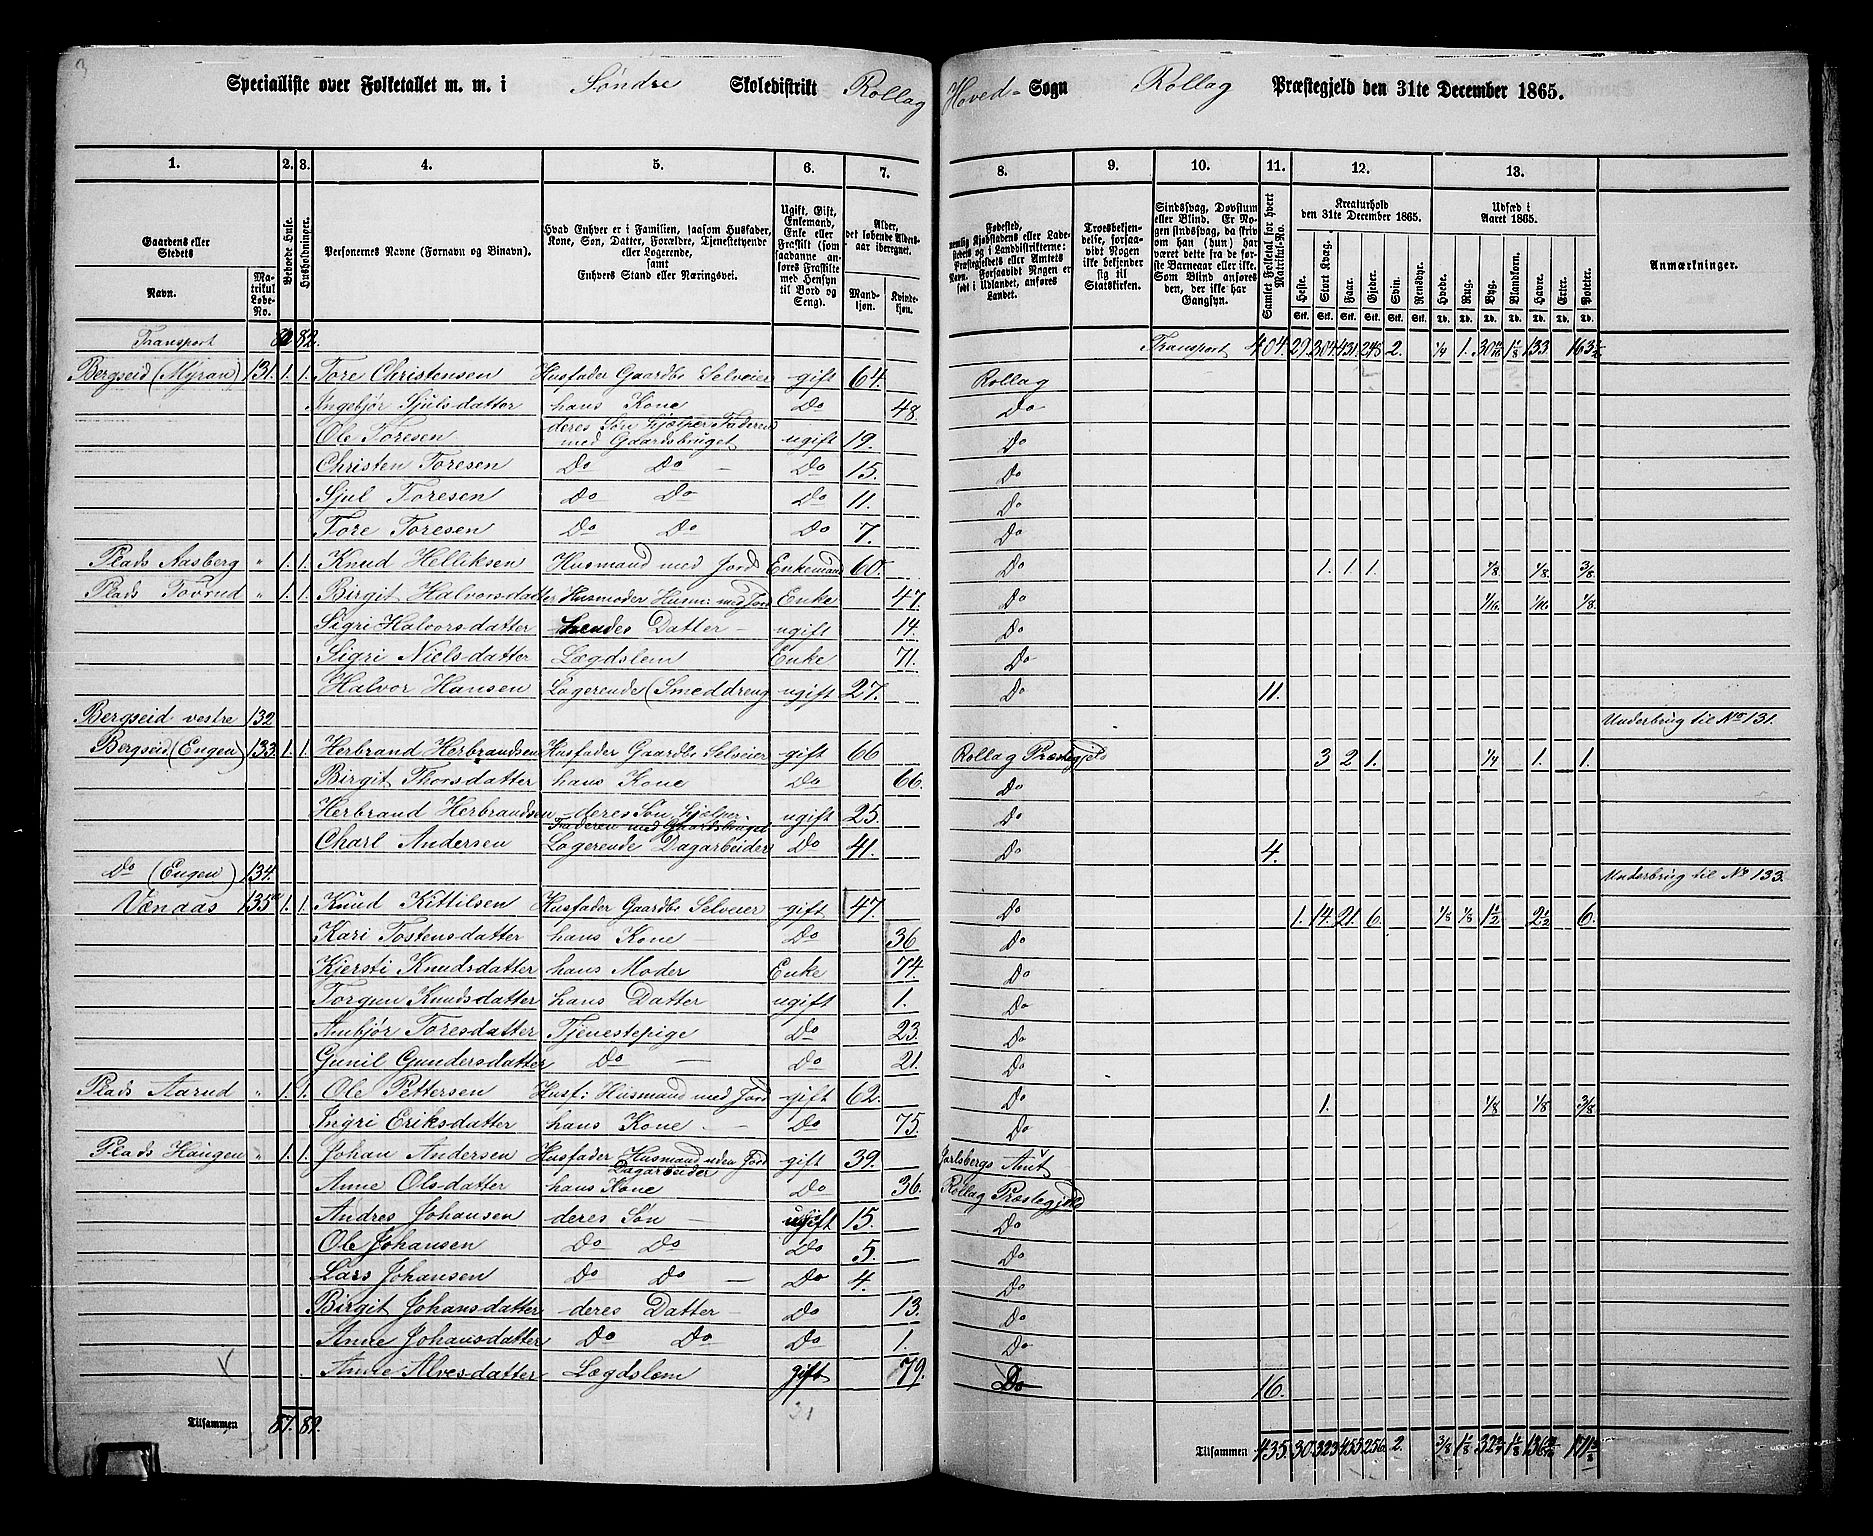 Specialliste over Folketallet m. m. i Søndre Skoledistrikt Rollag Hoved- Sogn Rollag Præstegjeld den 31te December 1865.
1. 2. 3. 4. 5. 6. 7. 8. 9. 10. 11. 12. 13.
Gaardens eller Stedets
Navn.
Matrikul Løbe-No.
Beboede Huse.
Husholdninger.
Personernes Navne (Fornavn og Binavn).
Hvad Enhver er i Familien, saasom Husfader, Kone, Søn, Datter, Forældre, Tjenestetyende eller Logerende, samt Enhvers Stand eller Næringsvei.
Ugift, Gift, Enkemand, Enke eller Fraskilt (som saadanne anføres Fraskilte med Hensyn til Bord og Seng).
Alder, det løbende Aldersaar iberegnet.
Mandkjøn. Kvindekjøn.
Fødested, nemlig Kjøbstadens eller Ladestedets og i Landdistrikterne: Præstegjeldets eller Amtets Navn. Forsaavidt Nogen er født i Udlandet, anføres Landet.
Troesbekjendelse, forsaavidt Nogen ikke bekjender sig til Statskirken.
Sindssvag, Døvstum eller Blind. Er Nogen sindssvag, da skriv om han (hun) har været dette fra de første Barneaar eller ikke. Som Blind anføres den, der ikke har Gangsyn.
Samlet Folketal for hvert Matrikul-No.
Kreaturhold den 31te December 1865.
Heste. Stort Kvæg. Faar. Gjeder. Svin. Rensdyr.
Udsæd i Aaret 1865.
Hvede. Rug. Byg. Blandkorn. Havre. Erter. Poteter.
Anmærkninger.
Transport 82. Transport 404. 29. 304. 431. 245 2. 1/4 1. 133
Bergseid (Myran) 131. 1. 1. Tore Christensen Husfader Gaardb. Selveier gift 64. Rollag
Ingebjør Sjulsdatter hans Kone Do 48. Do
Ole Toresen deres Søn hjælper Faderen med Gaardsbruget ugift 19. Do
Christen Toresen Do Do - Do 15. Do
Sjul Toresen Do Do Do 11. Do
Tore Toresen Do Do Do 7. Do
Plads Aasberg " 1. 1. Knud Helliksen Husmand med Jord Enkemand 60. Do 1. 1. 1. 1/8 1/8. 3/8
Plads Tovrud " 1. 1. Birgit Halvorsdatter Husmoder Husm: med Jord Enke 47. Do 1/16. 1/16 1/8.
Sigri Halvorsdatter hendes Datter - ugift 14. Do
Sigri Nielsdatter Lægdslem Enke 71. Do
Halvor Hansen Logerende (Smeddreng ugift 27. Do 11.
Bergseid vestre 132 Underbrug til No 131.
Bergseid (Engen) 133. 1. 1. Herbrand Herbrandsen Husfader Gaardb. Selveier gift 66 Rollag Præstegjeld 3 2 1. 1/4 1. 1.
Birgit Thorsdatter hans Kone Do 66. Do
Herbrand Herbrandsen deres Søn hjelper Faderen med Gaardsbruget ugift 25. Do
Charl Andersen Logerende Dagarbeider Do 41. Do 4.
Do (Engen) 134. Underbrug til No 133.
Vænaas 135 1. 1. Knud Kittilsen Husfader Gaardb. Selveier gift 47. Do 1. 14. 21. 6. 1/8 1/8. 1 1/2 2 1/2 6.
Kari Tostensdatter hans Kone - Do 36 Do
Kjersti Knudsdatter hans Moder Enke 74. Do
Torgun Knudsdatter hans Datter ugift 1. Do
Anbjør Toresdatter Tjenestepige Do 23. Do
Gunil Gundersdatter Do - Do 21. Do
Plads Aarud " 1. 1. Ole Pettersen Husf: Husmand med Jord gift 62. Do 1. 1/8 1/8 3/8
Ingri Eriksdatter hans Kone - Do 75. Do
Plads Haugen " 1. 1. Johan Andersen Husfader Husmand uden Jord Dagarbeider gift 39. Jarlsbergs Amt
Anne Olsdatter hans Kone Do 36. Rollag Præstegjeld
Andres Johansen deres Søn - ugift 15. Do
Ole Johansen Do Do Do 5. Do
Lars Johansen Do Do - Do 4. Do
Birgit Johansdatter deres Datter - Do 13. Do
Anne Johansdatter Do Do Do 1. Do
Anne Alvesdatter Lægdslem gift 79. Do 16.
31
Tilsammen 87. 89. Tilsammen 435. 30. 323 455 256. 2. 3/8